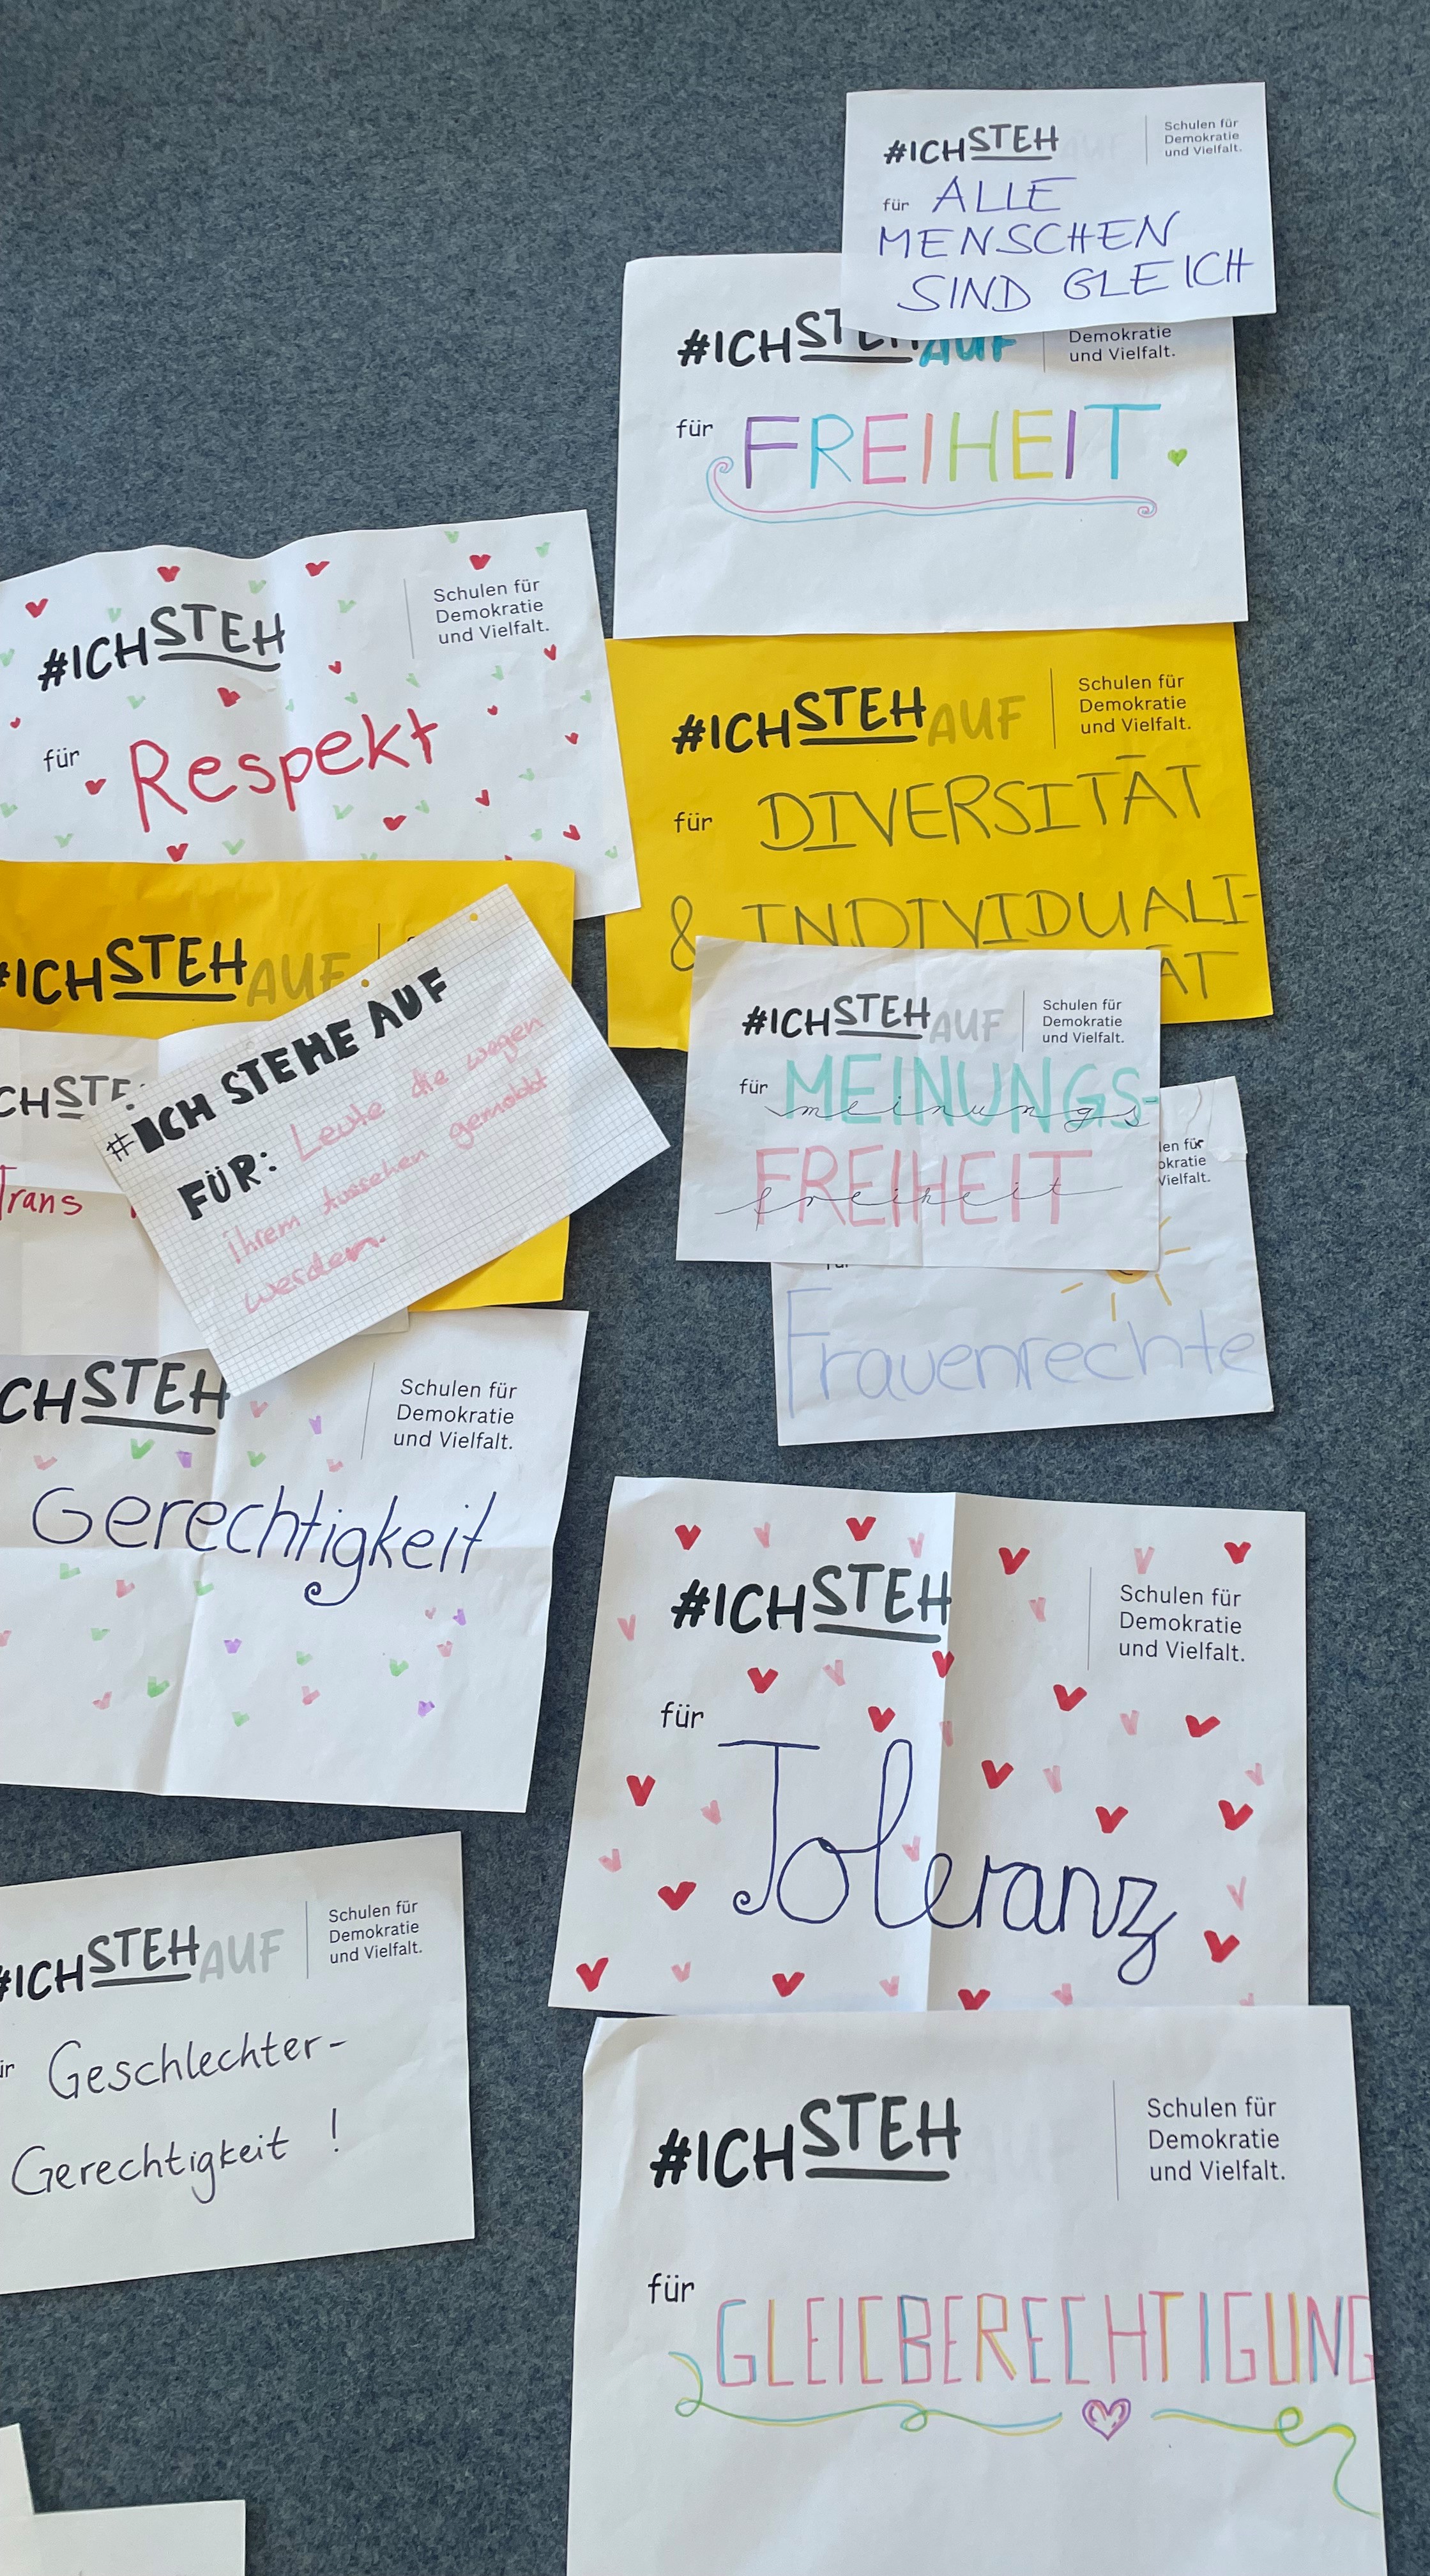 #ICHSTEH
Schulen für
Demokratie
und Vielfalt.
für ALLE
MENSCHEN
SIND GLEICH
#ICHSTEHAUF
Demokratie
und Vielfalt.
für FREIHEIT
#ICHSTEH
Schulen für
Demokratie
und Vielfalt.
für Respekt
#ICHSTEHAUF
Schulen für
Demokratie
und Vielfalt.
für DIVERSITÄT
& INDIVIDUALI-
ÄT
#ICHSTEHAUF
CHSTE
Trans
#ICH STEHE AUF
FÜR: Leute die wegen
ihrem Aussehen gemobbt
werden.
#ICHSTEHAUF
Schulen für
Demokratie
und Vielfalt.
für MEINUNGS-
meinungs
FREIHEIT
freiheit
len für
okratie
Vielfalt.
Frauenrechte
CHSTEH
Schulen für
Demokratie
und Vielfalt.
Gerechtigkeit
#ICHSTEH
Schulen für
Demokratie
und Vielfalt.
für
Toleranz
#ICHSTEHAUF
Schulen für
Demokratie
und Vielfalt.
ür Geschlechter-
Gerechtigkeit !
#ICHSTEH
Schulen für
Demokratie
und Vielfalt.
für
GLEICBERECHTIGUNG